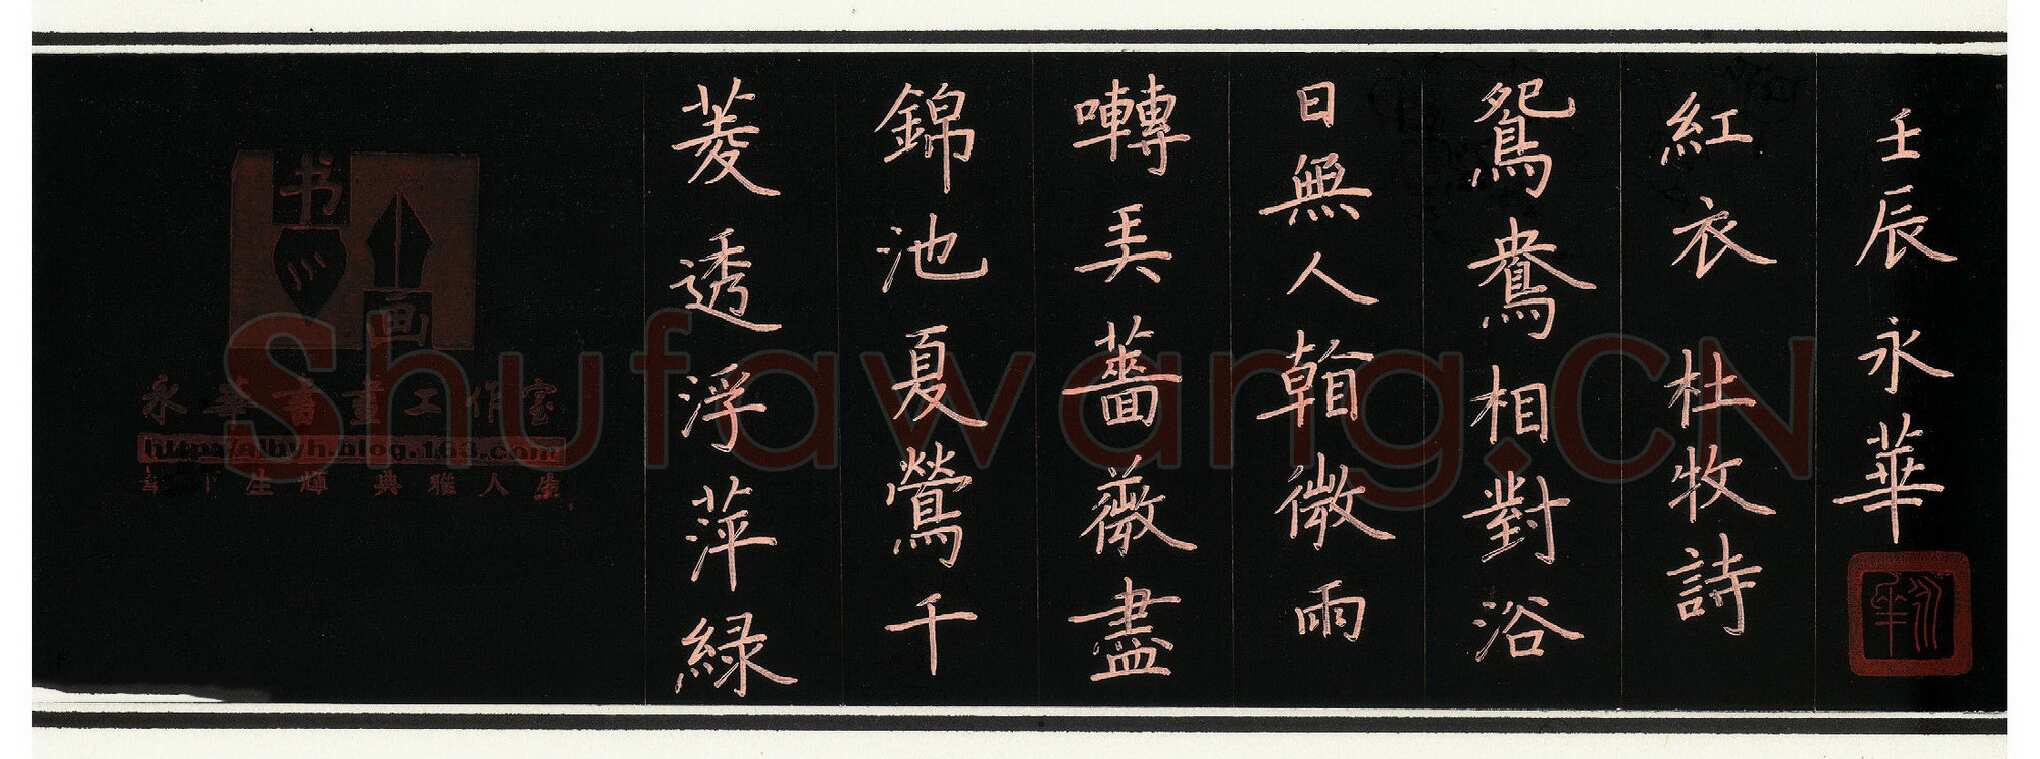 菱透浮萍緑
錦池夏鶯千
囀弄薔薇盡
日無人看微雨
鴛鴦相對浴
紅衣 杜牧詩
壬辰 永華
永華
书画
永華書畫工作室
下生輝 典雅人
Shufawang.CN